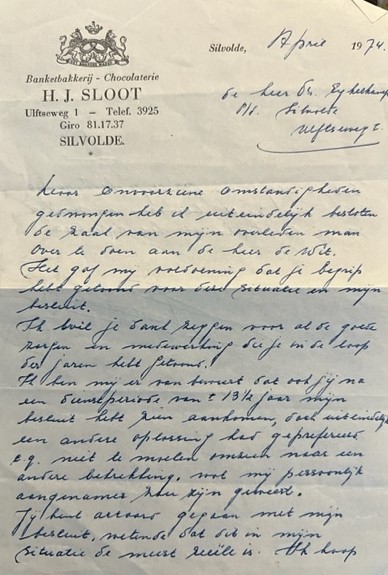 Banketbakkerij - Chocolaterie
H. J. SLOOT
Ulftseweg 1 – Telef. 3925
Giro 81.17.37
SILVOLDE.
Silvolde, April 1974.
de heer
Silvolde
Ulftseweg
Door onvoorziene omstandigheden
gedwongen heb ik uiteindelijk besloten
de zaak van mijn overleden man
over te doen aan de heer de Wit.
Het gaf mij voldoening dat je begrip
hebt getoond voor deze situatie en mijn
besluit.
Ik wil je dank zeggen voor al de goede
zorgen en medewerking die je in de loop
der jaren hebt getoond.
Ik ben mij er van bewust dat ook jij na
een dienstperiode van 13½ jaar mijn
besluit hebt zien aankomen, doch uiteindelijk
een andere oplossing had geprefereerd
niet te moeten omzien naar een
andere betrekking, wat mij persoonlijk
aangenamer zou zijn geweest.
Jij bent accoord gegaan met mijn
besluit, wetende dat dit in mijn
situatie de meest reële is. Ik hoop